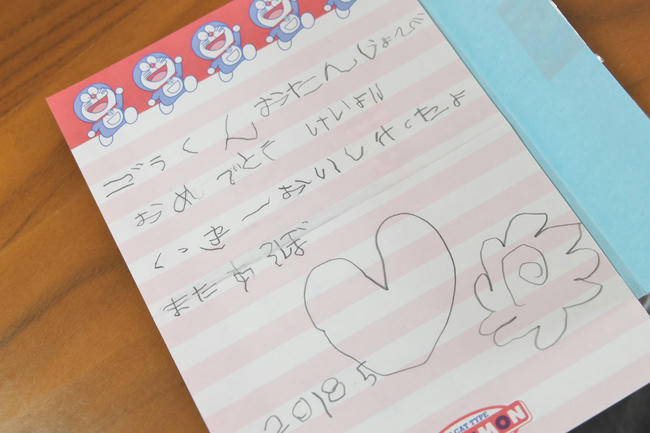 ごうくん おたんじょうび
おめでとう
くっきーおいしかったよ
またあそぼ
2018.5
CAT TYPE
MON